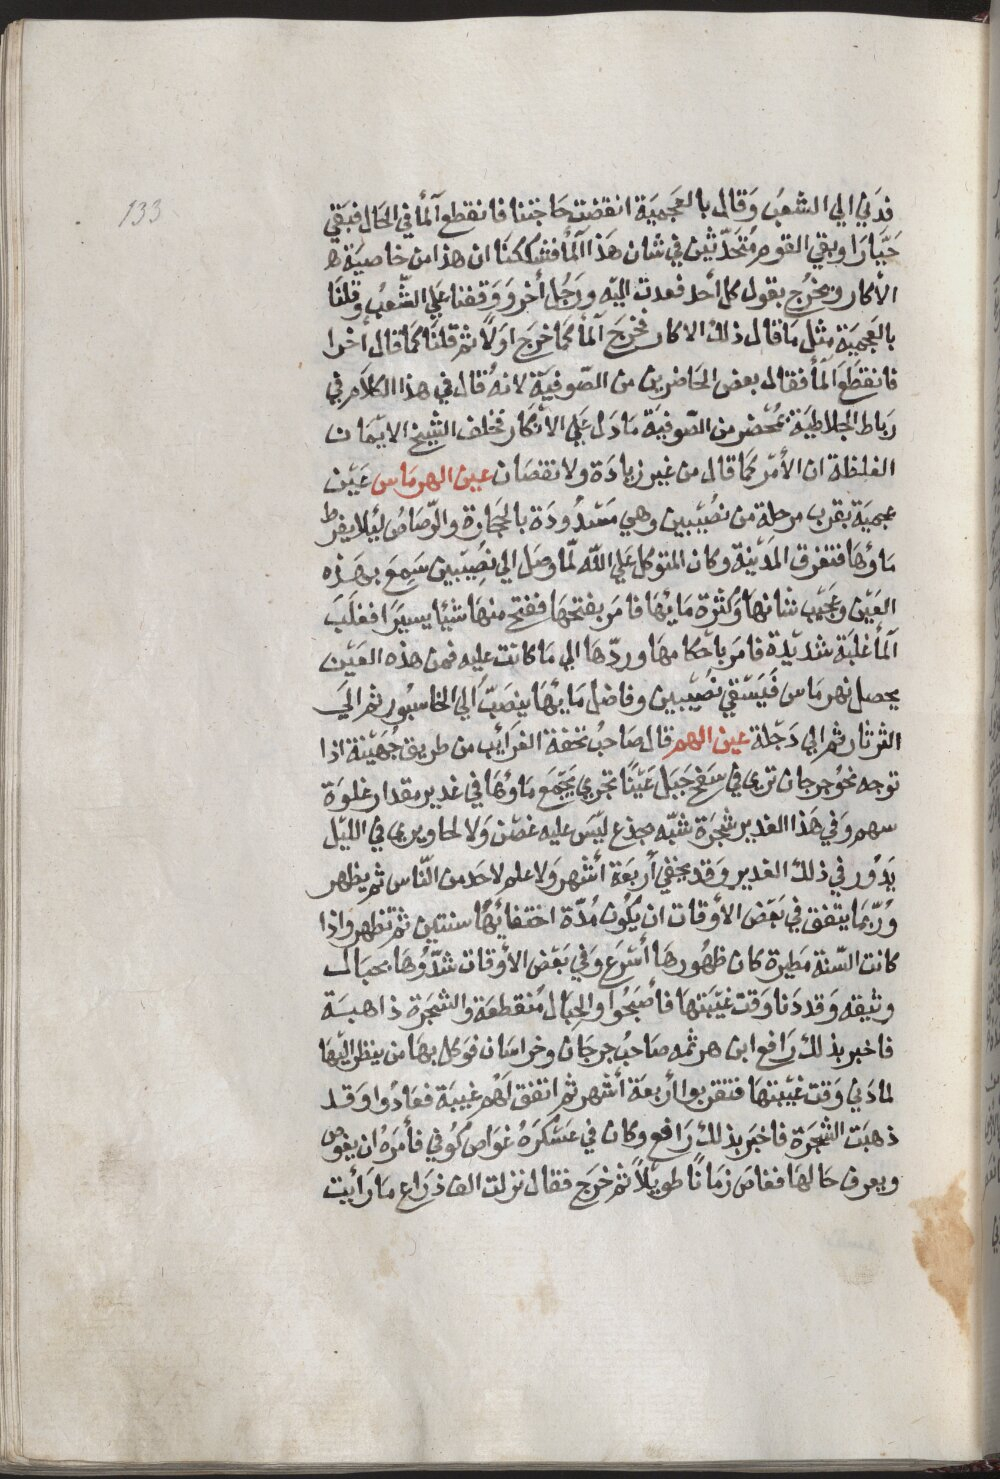 133
فدني الي الشعب وقال بالعجمية انقضت حاجتنا فانقطع الما في الحال فبقي
حيارا وبقي القوم متحدثين في شان هذا الما فشككنا ان هذا من خاصية
الاكار ويخرج بقول كل أحد فعدت اليه ورجل أخر ووقفنا علي الشعب وقلنا
بالعجمية مثل ما قال ذلك الاكار فخرج الما كما خرج اولا ثم قلنا كما قال أخرا
فانقطع الما فقال بعض الحاضرين من الصوفية لانه قال في هذا الكلام في
رباط الجلاطية بمحضر من الصوفية ما دل علي الانكار فحلف الشيخ الايمان
الغلظة ان الأمر كما قال من غير زيادة ولا نقصان عين الهرماس عين
عجمية بقرب مرحلة من نصيبين وهي مسدودة بالحجارة والرصاص ليلا يفرط
ماوها فتغرق المدينة وكان المتوكل علي الله لما وصل الي نصيبين سمع بهذه
العين وعجيب شانها وكثرة مايها فامر بفتحها ففتح منها شيئا يسيرا فغلب
الما غلبة شديدة فامر باحكامها وردها الي ما كانت عليه فمن هذه العين
يحصل نهر ماس فيسقي نصيبين وفاضل مايها ينصب الي الخاسبور ثم الي
الثرثار ثم الي دجلة عين الهم قال صاحب تحفة الغرائب من طريق جهينة اذا
توجه نحو جرجان تري في سفح جبل عينا تجري يجتمع ماوها في غدير مقدار غلوة
سهم وفي هذا الغدير شجرة شبه بجذع ليس عليه غصن ولا لحا ويري في الليل
يدور في ذلك الغدير وقد يخفي أربعة أشهر ولا علم لاحد من الناس ثم يظهر
وربما يتفق في بعض الأوقات ان يكون مدة اختفائها سنتين ثم تظهر واذا
كانت السنة مطيرة كان ظهورها أسرع وفي بعض الأوقات شدوها بحبال
وثيقه وقد دنا وقت غيبتها فأصبحوا والحبال منقطعة والشجرة ذاهبة
فاخبر بذلك رافع ابن هرثمه صاحب جرجان وخراسان فوكل بها من ينظر اليها
لما دني وقت غيبتها فتقربوا أربعة أشهر ثم اتفق لهم غيبة فعادوا وقد
ذهبت الشجرة فاخبر بذلك رافع وكان في عسكره غواص كوفي فأمره ان يغوص
ويعرف حالها فغاص زمانا طويلا ثم خرج فقال نزلت الف ذراع ما رأيت